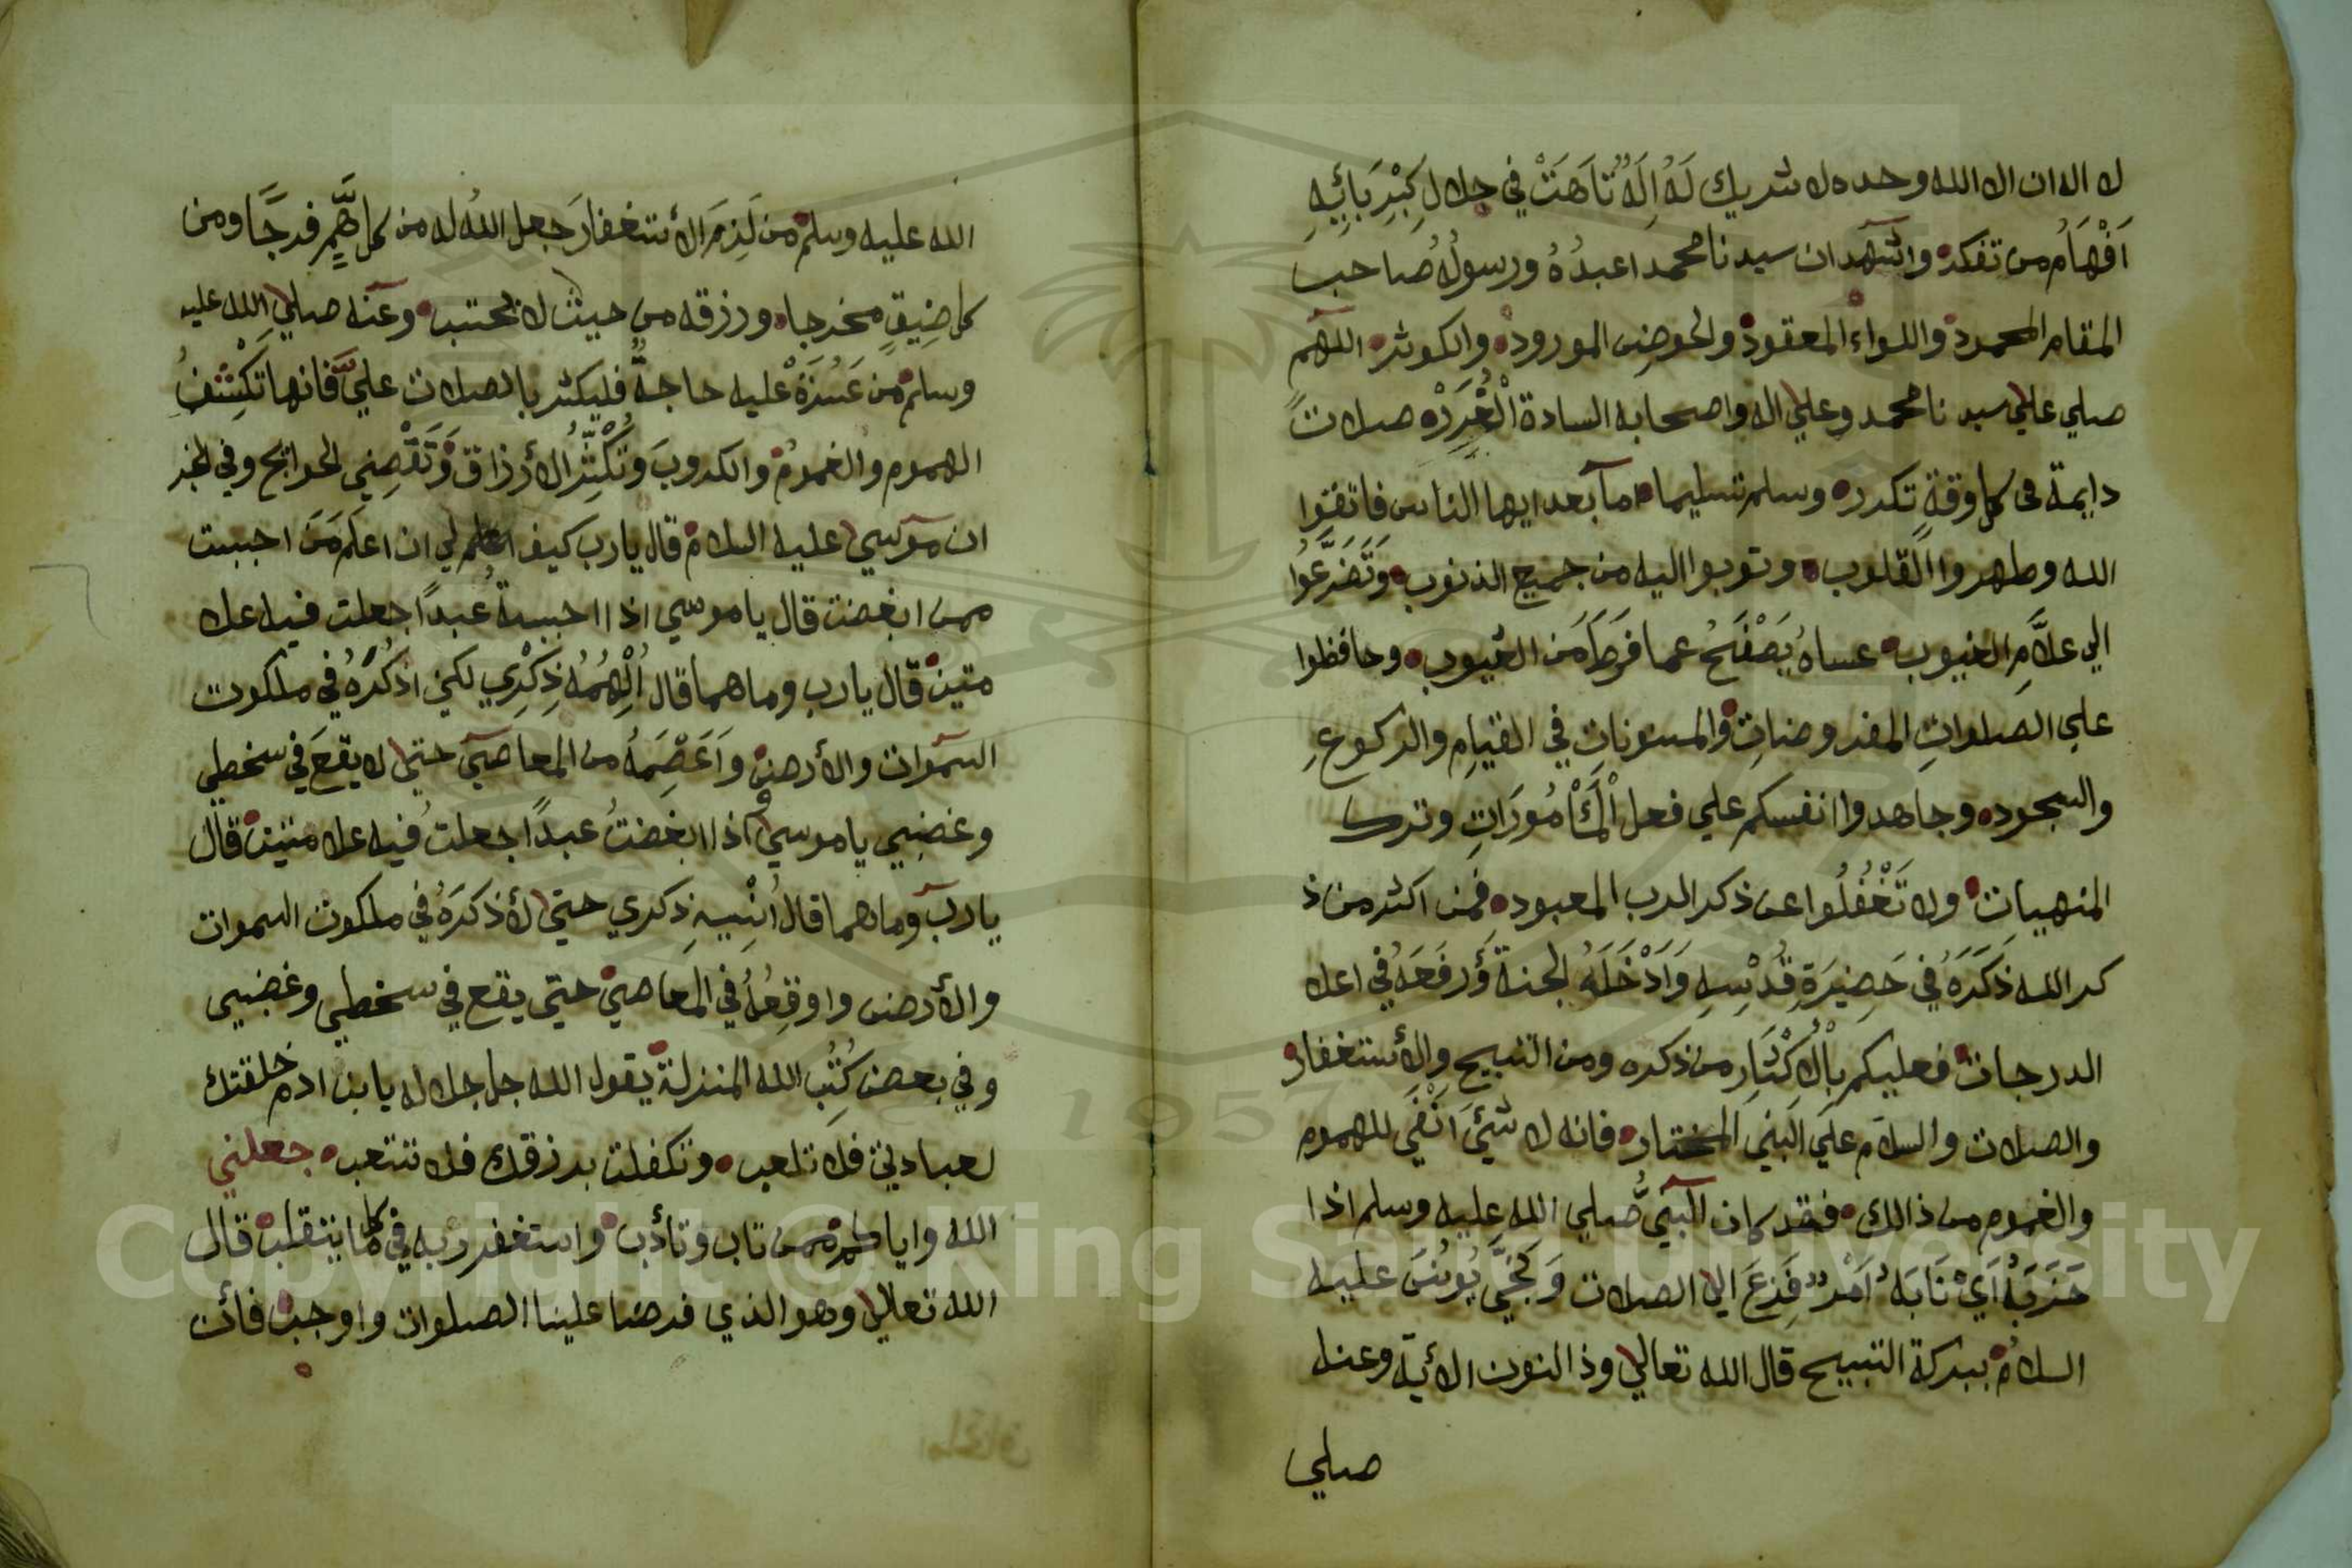 لا اله ان الا الله وحده لا شريك لَهُ اِلَهٌ تَاهَتْ في جلال كِبْرِيَائِهِ
اَفْهَامُ من تفكر واشهد ان سيدنا محمدا عبدُهُ ورسولُهُ صاحب
المقام المحمود واللواء المعقود والحوض المورود والكوثر اللهم
صلي علي سيد نا محمد وعلي اله واصحابه السادة الْغُرَرْ صلات
دايمة في كل وقة تكرر وسلم تسليما اما بعد ايها الناس فاتقوا
الله وطهروا القلوب وتوبوا اليه من جميع الذنوب وَتَضَرَّعُوا
الي علَّامِ الغيوب عساهُ يَصْفَحُ عما فَرَطَ مَن العيوب وحافظوا
علي الصلواتِ المفروضاتِ والمسنوناتِ في القيامِ والركوعِ
والسجود وجاهدوا انفسكم علي فعل الْمَأْمُورَاتِ وترك
المنهيات ولا تَغْفُلُوا عن ذكر الرب المعبود فمن اكثر من ذ
كر الله ذَكَرَهُ في حَضِيرَةِ قُدْسِهِ وَاَدْخَلَهُ الجنة وَرَفَعَهُ في اعلا
الدرجات فعليكم بِالْاِكْثَارِ من ذكره ومن التسبيح والأستغفار
والصلات والسلام علي النبي المختار فانه لا شيئَ اَنْفَي للهموم
والغموم من ذالك فقد كان النبيُّ صلي الله عليه وسلم اذا
حَزَبَهُ اَيْ نَابَهُ اَمْرٌ فَزِعَ الي الصلات وَنَجَّي يُونُسَ عليه
السلام ببركة التسبيح قال الله تعالي وذا النون الأية وعنه
صلي
الله عليه وسلم من لَزِمَ الأستغفارَ جعل اللهُ له من كل هَمٍّ فرجًا ومن
كل ضِيقٍ مخرجا ورزقه من حيث لا يحتسب وعنه صلي الله عليه
وسلم من عَسُرَةْ عليه حاجةٌ فليكثر بالصلات عليَّ فانها تَكْشِفُ
الهموم والغموم والكروبَ وتُكْثِرُ الأرزاق وَتَقْضِي الحوائج وفي الخبر
ان موسي عليه السلام قال يارب كيف اعلم لي ان اعلم مَنَ احببت
ممن ابغضت قال يا موسي اذا احببةُ عبدًا جعلت فيه علا
متين قال يارب وما هما قال اُلْهِمُهُ ذِكْرِي لكي اذكُرَهُ في ملكوت
السموات والأرض وَاَعْصِمَهُ من المعاصي حتي لا يقعَ في سخطي
وغضبي يا موسي واذا ابغضتُ عبدًا جعلتُ فيه علا متين قال
يارب وما هما قال اُنْسِيهِ ذكري حتي لأذكرَهُ في ملكوت السموات
والأرض واوقِعُهُ في المعاصي حتي يقع في سخطي وغضبي
وفي بعض كُتُبِ الله المنزلة يقول الله جل جلاله يا بن ادم خلقتك
لعبادتي فلا تلعب وتكفلت برزقك فلا تتعب جعلني
الله واياكم ممن تاب وتأدب واستغفر ربه في كلما يتقلب قال
الله تعالي وهو الذي فرضا علينا الصلوات واوجب فأت